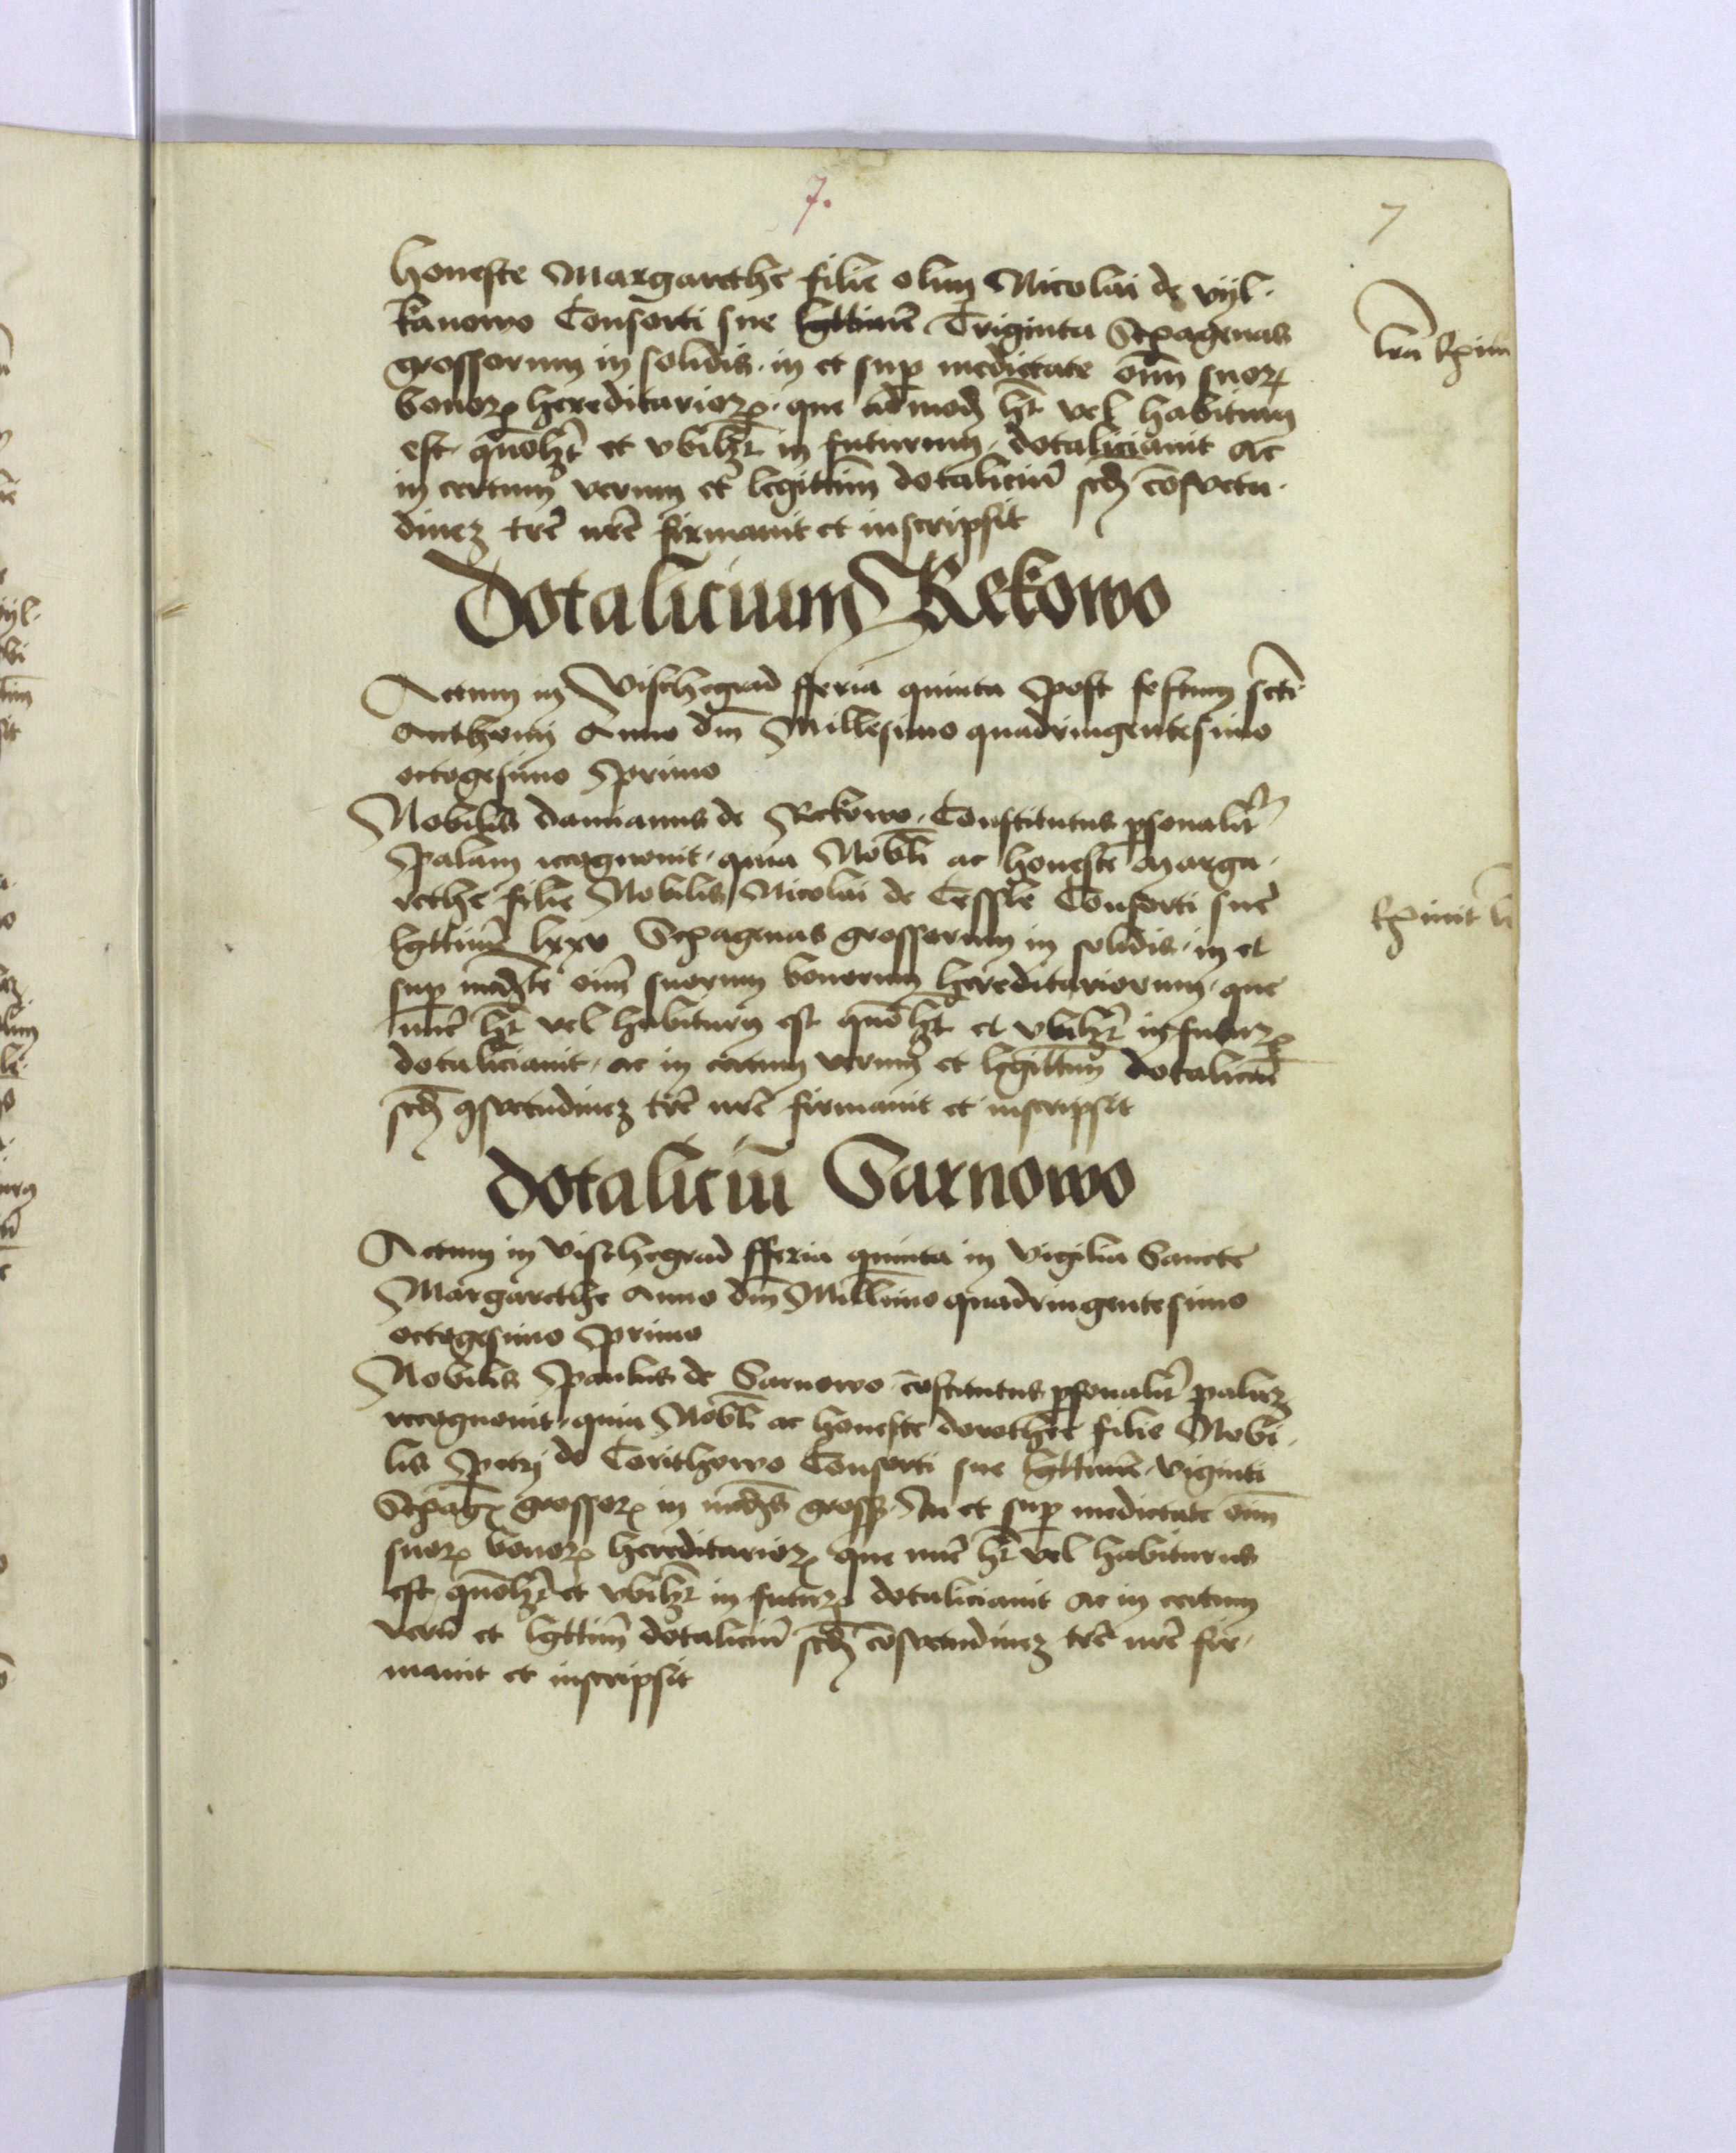 7.
7
honeste Margarethe filie olim Nicolai de vyl-
kanowo Consorti sue lgttime Triginta Sexagenas
grossorum in solidis. in et sup medietate oim suor
bonor hereditarior. que admod ht vel habiturus
est. quolt et vbilt in futurum. dotaliciauit Ac
in certum verum et legittim dotaliciu scd cosvetu-
dinez tre nre firmauit et inscripsit
lra Rpim
Dotalicium Rekowo
Actum in Vischegrad fferia quinta post festum scti
Anthonij Anno dm Millesimo quadringentesimo
octogesimo primo
Nobilis damianus de Rekowo. Constitutus psonalit
palam recognouit. quia Nobli ac honeste Marga-
rethe filie Nobilis Nicolai de Cessle Consorti sue
lgttime lxxv Sexagenas grossorum in solidis. in et
sup medte oim suorum bonorum hereditariorum. que
nuc ht vel habiturus est quolt et vbilt in futur
dotaliciauit. ac in certum verum et lgittim dotaliciu
scd gsvetudinez tre nre firmauit et inscripsit
Rpimit
dotaliciu Sarnowo
Actum in Vischegrad fferia quinta in vigilia Sancte
Margarethe Anno dm Millimo quadringentesimo
octogesimo primo
Nobilis Paulus de Sarnowo costitutus psonalit palaz
recognouit. quia Nobli ac honeste dorothee filie Nobi-
lis Petri de Corithowo Consorti sue lgttime. viginti
Sexag grossor in medijs gross. In et sup medietate oim
suor bonor hereditarior que nuc ht vel habiturus
est quolt et vbilt in futur dotaliciauit Ac in certum
veru et lgttim dotaliciu scd cosvetudinez tre nre fir-
mauit et inscripsit